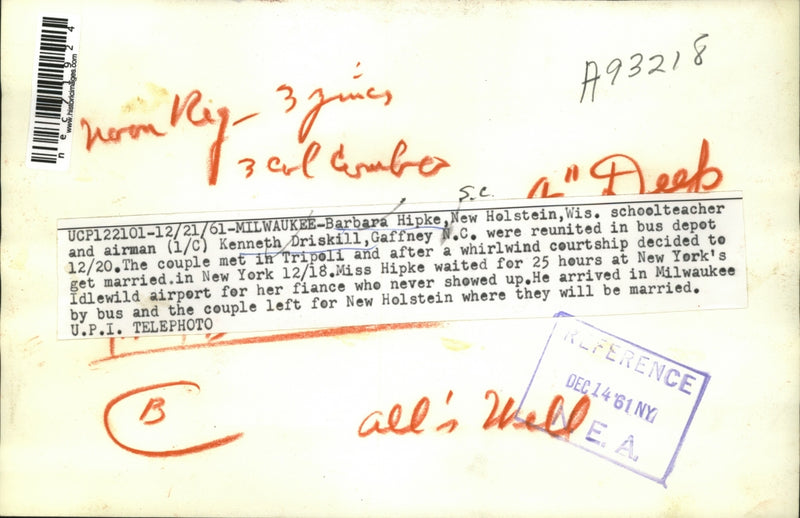 nec21924
www.historicimages.com
A93218
Noon Reg - 3 zincs
3 Col Combo
" Deep
S.C.
UCP122101-12/21/61-MILWAUKEE-Barbara Hipke,New Holstein,Wis. schoolteacher
and airman (1/C) Kenneth Driskill,Gaffney N.C. were reunited in bus depot
12/20.The couple met in Tripoli and after a whirlwind courtship decided to
get married.in New York 12/18.Miss Hipke waited for 25 hours at New York's
Idlewild airport for her fiance who never showed up.He arrived in Milwaukee
by bus and the couple left for New Holstein where they will be married.
U.P.I. TELEPHOTO
B
all's Well
REFERENCE
DEC 14 '61 NY
N.E.A.